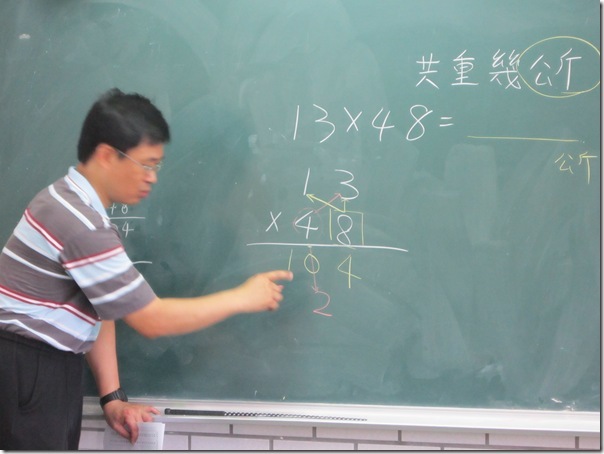 共重幾公斤
13×48=
公斤
13
×48
104
2